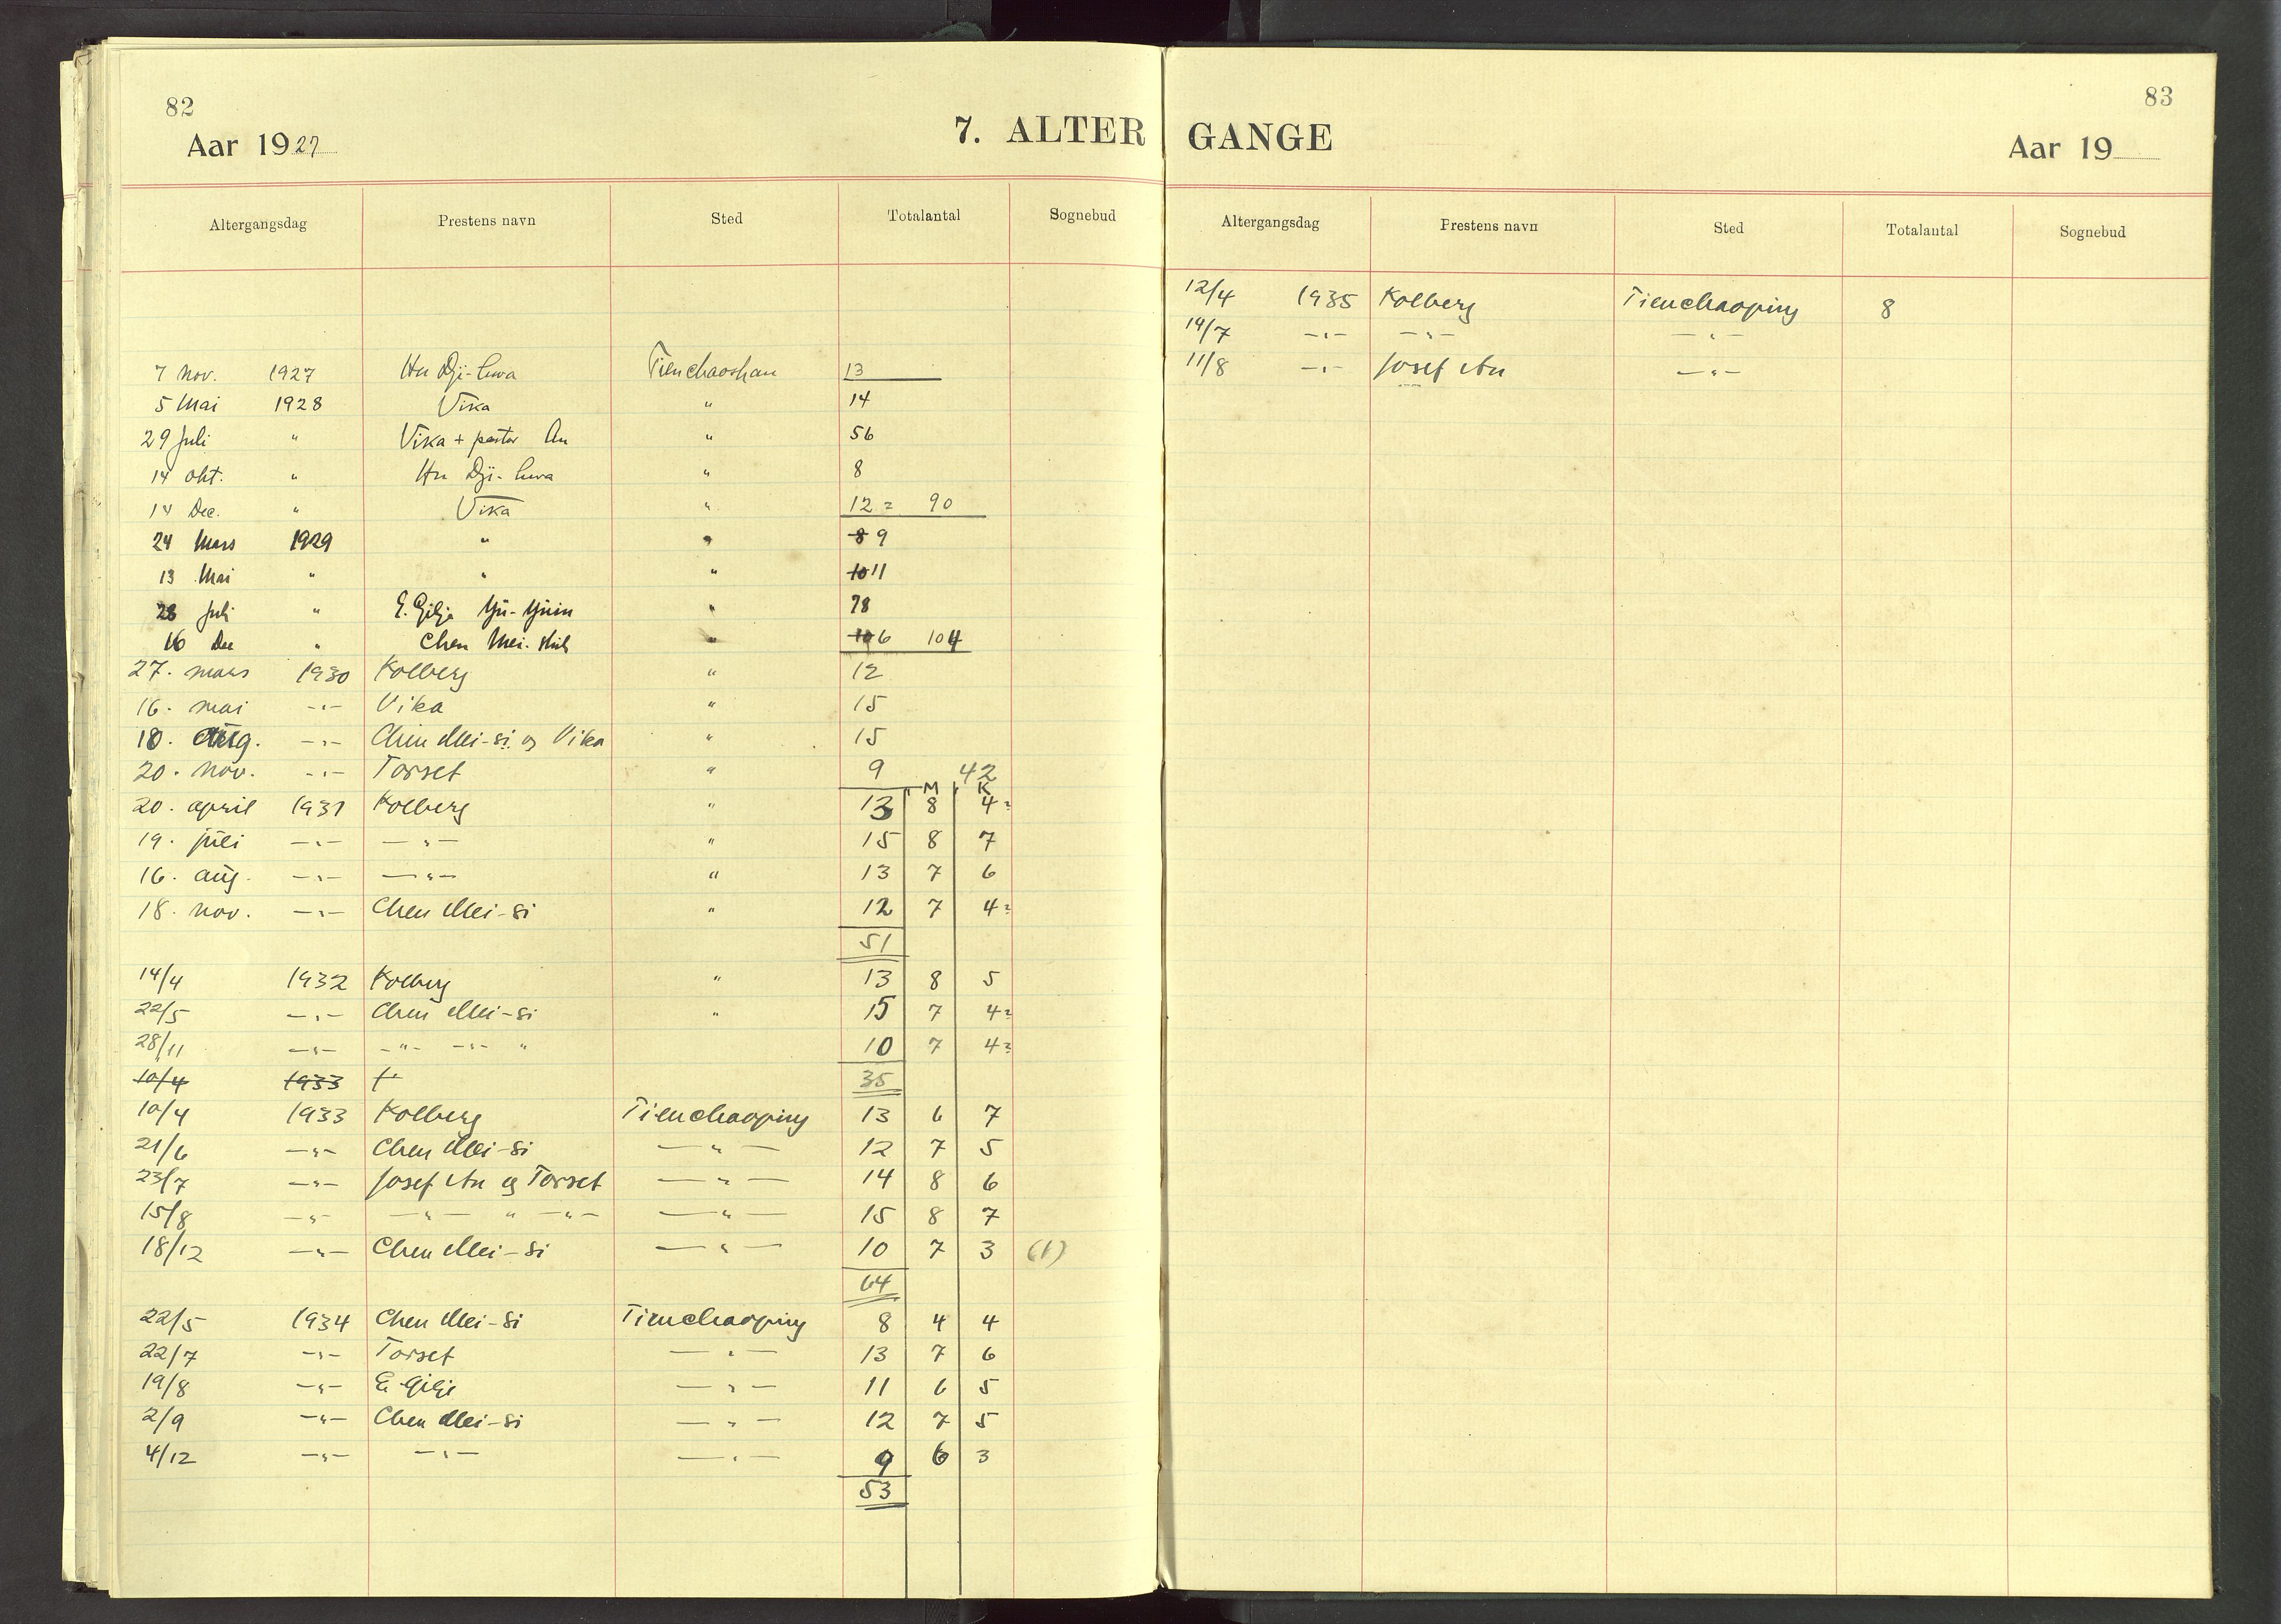 82
Aar 1927
7. ALTER
Altergangsdag Prestens navn Sted Totalantal Sognebud
7 Nov. 1927 Hu Dji-hwa Tienchaoshan 13
5 Mai 1928 Vika " 14
29 Juli " Vika + pastor An " 56
14 Okt. " Hu Dji-hwa " 8
14 Dec. " Vika " 12 = 90
24 Mars 1929 " " 8 9
13 Mai " " " 10 11
28 Juli " E. Gilje Yü-Yüin " 78
16 Dec " Chen Mei-shih " 10 6 104
27. mars 1930 Kolberg " 12
16. mai -"- Vika " 15
10. aug. -"- Chen Mei-si og Vika " 15
20. nov. -"- Torset " 9 42
M K
20. april 1931 Kolberg " 13 8 4?
19. juli -"- -"- " 15 8 7
16. aug. -"- -"- " 13 7 6
18. nov. -"- Chen Mei-si " 12 7 4?
51
14/4 1932 Kolberg " 13 8 5
22/5 -"- Chen Mei-si " 15 7 4?
28/11 -"- -"- -"- " 10 7 4?
10/4 1933 35
10/4 1933 Kolberg Tienchaoping 13 6 7
21/6 -"- Chen Mei-si -"- 12 7 5
23/7 -"- Josef An og Torset -"- 14 8 6
15/8 -"- -"- " -"- -"- 15 8 7
18/12 -"- Chen Mei-si -"- 10 7 3 (1)
64
22/5 1934 Chen Mei-si Tienchaoping 8 4 4
22/7 -"- Torset -"- 13 7 6
19/8 -"- E. Gilje -"- 11 6 5
2/9 -"- Chen Mei-si -"- 12 7 5
4/12 -"- -"- -"- 9 6 3
53
83
GANGE
Aar 19
Altergangsdag Prestens navn Sted Totalantal Sognebud
12/4 1935 Kolberg Tienchaoping 8
14/7 -"- -"- -"-
11/8 -"- Josef An -"-